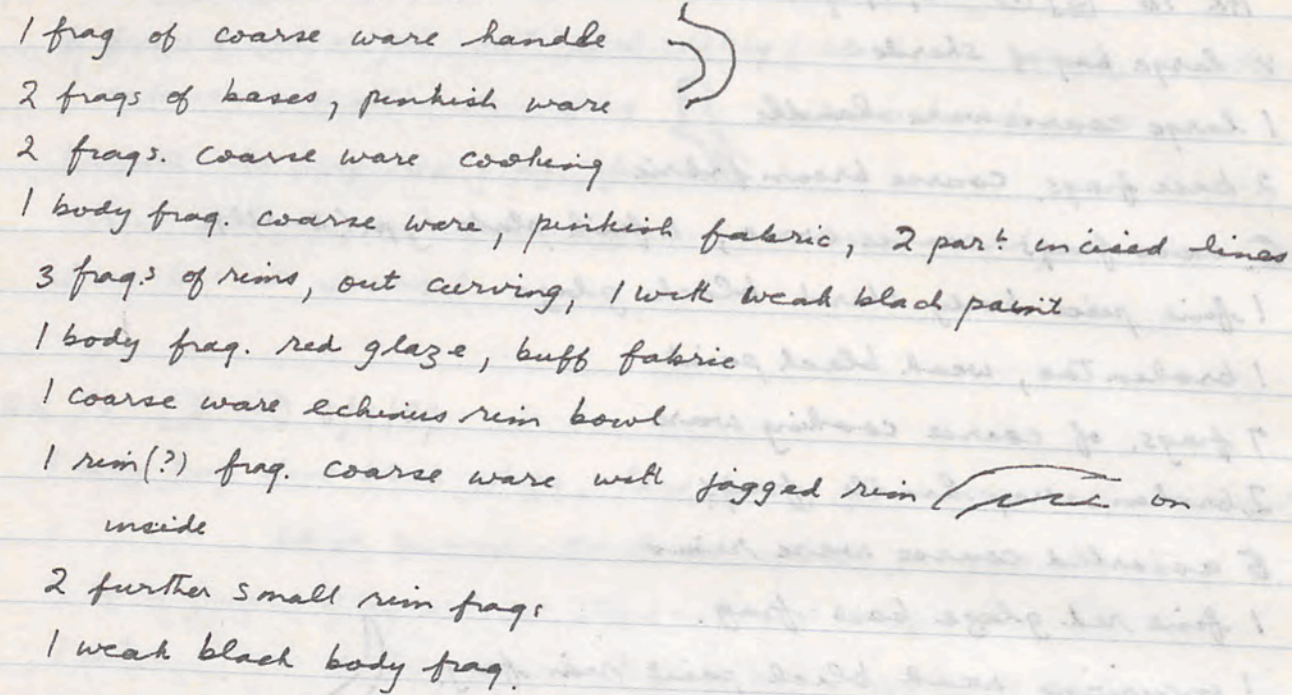 1 frag of coarse ware handle
2 frags of bases, pinkish ware
2 frags. coarse ware cooking
1 body frag. coarse ware, pinkish fabric, 2 part. incised lines
3 frag.s of rims, out curving, 1 with weak black paint
1 body frag. red glaze, buff fabric
1 coarse ware echinus rim bowl
1 rim(?) frag. coarse ware with jagged rim on
inside
2 further small rim frags
1 weak black body frag.